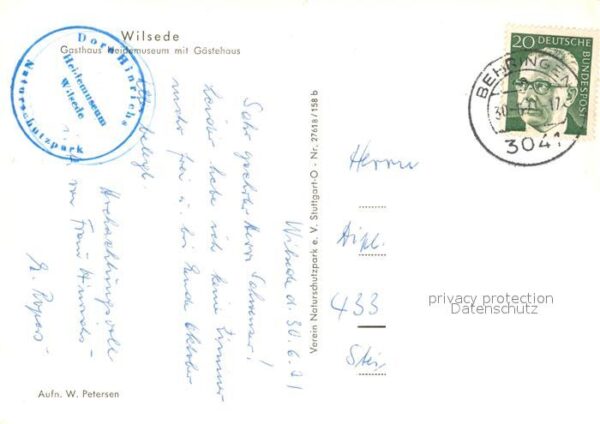 Wilsede
Gasthaus Heidemuseum mit Gästehaus
Dora Hinrichs
Heidemuseum
Wilsede
Naturschutzpark
20 DEUTSCHE BUNDESPOST
BEHRINGEN
30.6.71 17
3041
Wilsede d. 30.6.71
Sehr geehrter Herr Schweuser!
Leider habe ich keine Zimmer
mehr frei u. bis Ende Oktober
alles belegt.
Hochachtungsvoll
von Frau Hinrichs
Verein Naturschutzpark e. V. Stuttgart-O · Nr. 27618/158 b
Herrn
Dipl.
433
privacy protection
Datenschutz
Aufn. W. Petersen